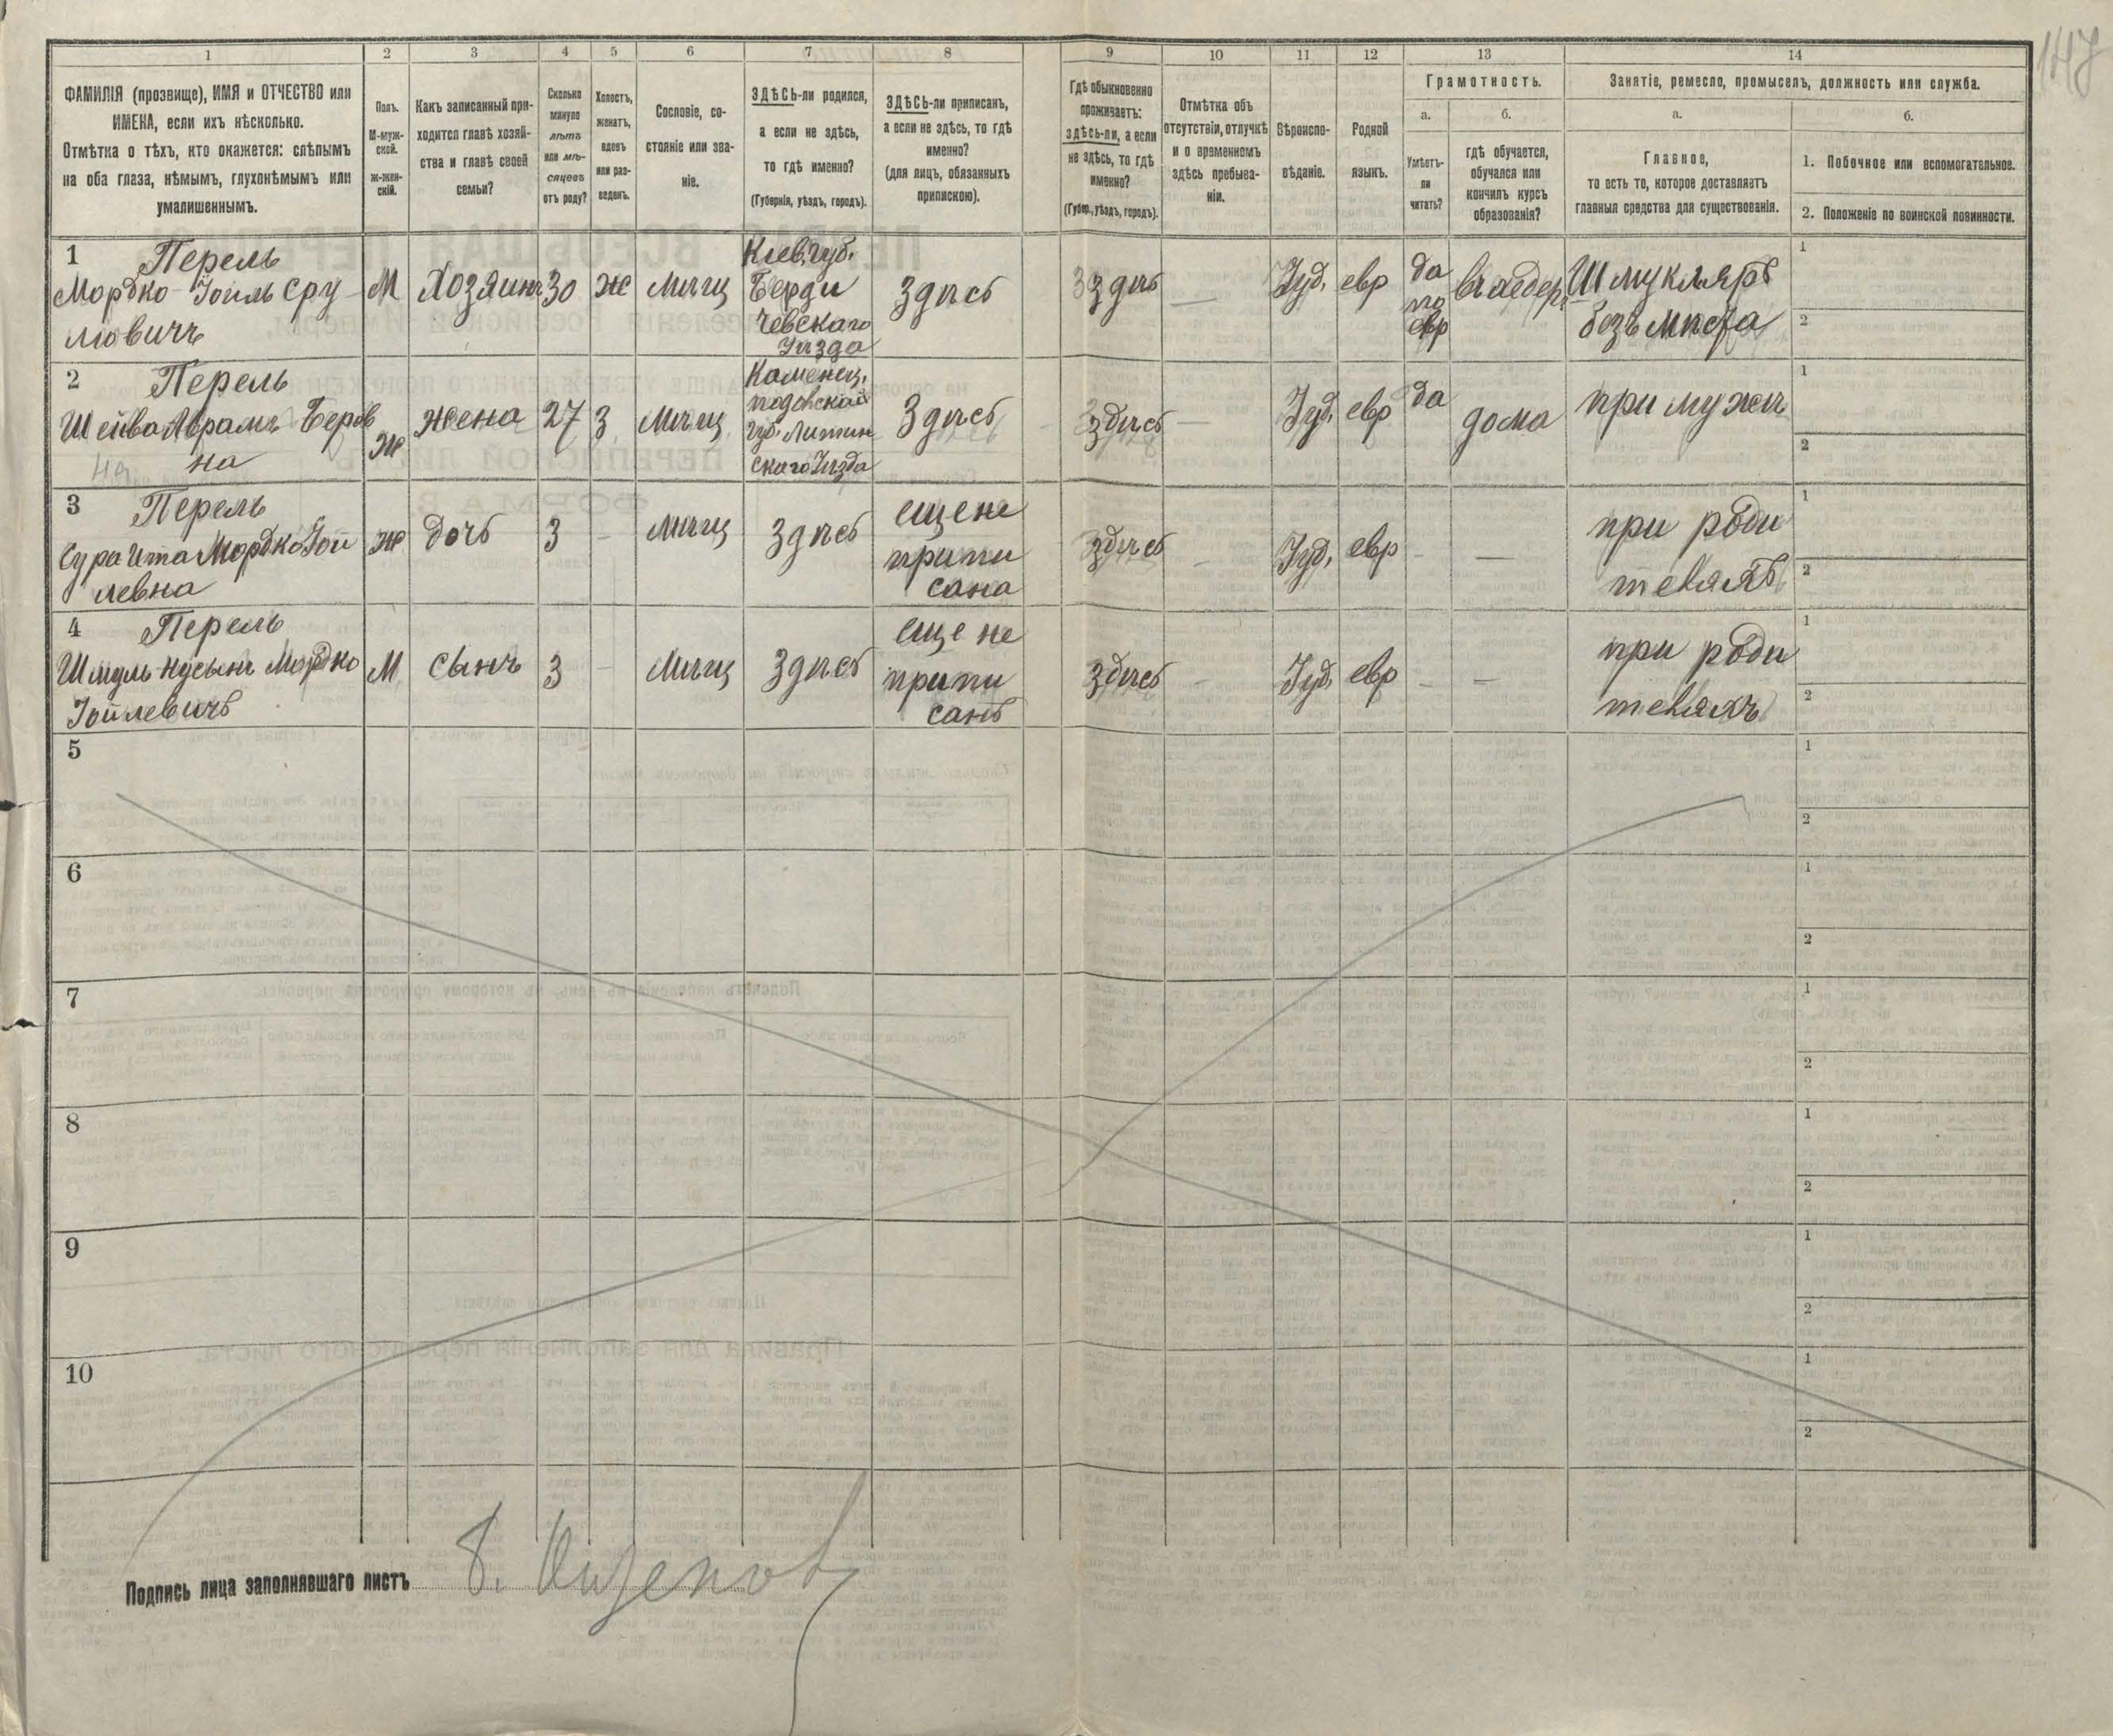 1 2 3 4 5 6 7 8 9 10 11 12 13 14
ФАМИЛІЯ (прозвище), ИМЯ и ОТЧЕСТВО или
ИМЕНА, если ихъ нѣсколько.
Отмѣтка о тѣхъ, кто окажется: слѣпымъ
на оба глаза, нѣмымъ, глухонѣмымъ или
умалишеннымъ.
Полъ.
М-муж-
ской.
Ж-жен-
скій.
Какъ записанный при-
ходится главѣ хозяй-
ства и главѣ своей
семьи?
Сколько
минуло
лѣтъ
или мѣ-
сяцевъ
отъ роду?
Холостъ,
женатъ,
вдовъ
или раз-
веденъ.
Сословіе, со-
стояніе или зва-
ніе.
ЗДѢСЬ-ли родился,
а если не здѣсь,
то гдѣ именно?
(Губернія, уѣздъ, городъ).
ЗДѢСЬ-ли приписанъ,
а если не здѣсь, то гдѣ
именно?
(для лицъ, обязанныхъ
припискою).
Гдѣ обыкновенно
проживаетъ:
здѣсь-ли, а если
не здѣсь, то гдѣ
именно?
(Губер., уѣздъ, городъ).
Отмѣтка объ
отсутствіи, отлучкѣ
и о временномъ
здѣсь пребыва-
ніи.
Вѣроиспо-
вѣданіе.
Родной
языкъ.
Грамотность.
а.
Умѣетъ-
ли
читать?
б.
гдѣ обучается,
обучался или
кончилъ курсъ
образованія?
Занятіе, ремесло, промыселъ, должность или служба.
а.
Главное,
то есть то, которое доставляетъ
главныя средства для существованія.
б.
1. Побочное или вспомогательное.
2. Положеніе по воинской повинности.
1 Перель
Мордко-Іойль Сру
люовичъ
М
Хозяинъ
30
Ж
Мѣщ
Кіев. губ.
Берди
чевскаго
Уѣзда
Здѣсь
Здѣсь
—
Іуд.
евр
да
по
евр
въ хедер.
Шмукляръ
безъ мѣста
1
2
2 Перель
Шейва Аврамъ Беров
на
Ж
жена
27
З
Мѣщ
Каменец.
подольской
губ. Литин
скаго Уѣзда
Здѣсь
здѣсь
—
Іуд.
евр
да
дома
при мужѣ
1
2
3 Перель
Сура Ита Мордко Іой
левна
Ж
дочь
3
—
мѣщ
Здѣсь
еще не
припи
сана
здѣсь
—
Іуд.
евр
—
—
при роди
теляхъ
1
2
4 Перель
Шмуль Нусынъ Мордко
Іойлевичъ
М
сынъ
3
—
Мѣщ
Здѣсь
еще не
припи
санъ
здѣсь
—
Іуд.
евр
—
—
при роди
теляхъ
1
2
5
1
2
6
1
2
7
1
2
8
1
2
9
1
2
10
1
2
Подпись лица заполнявшаго листъ